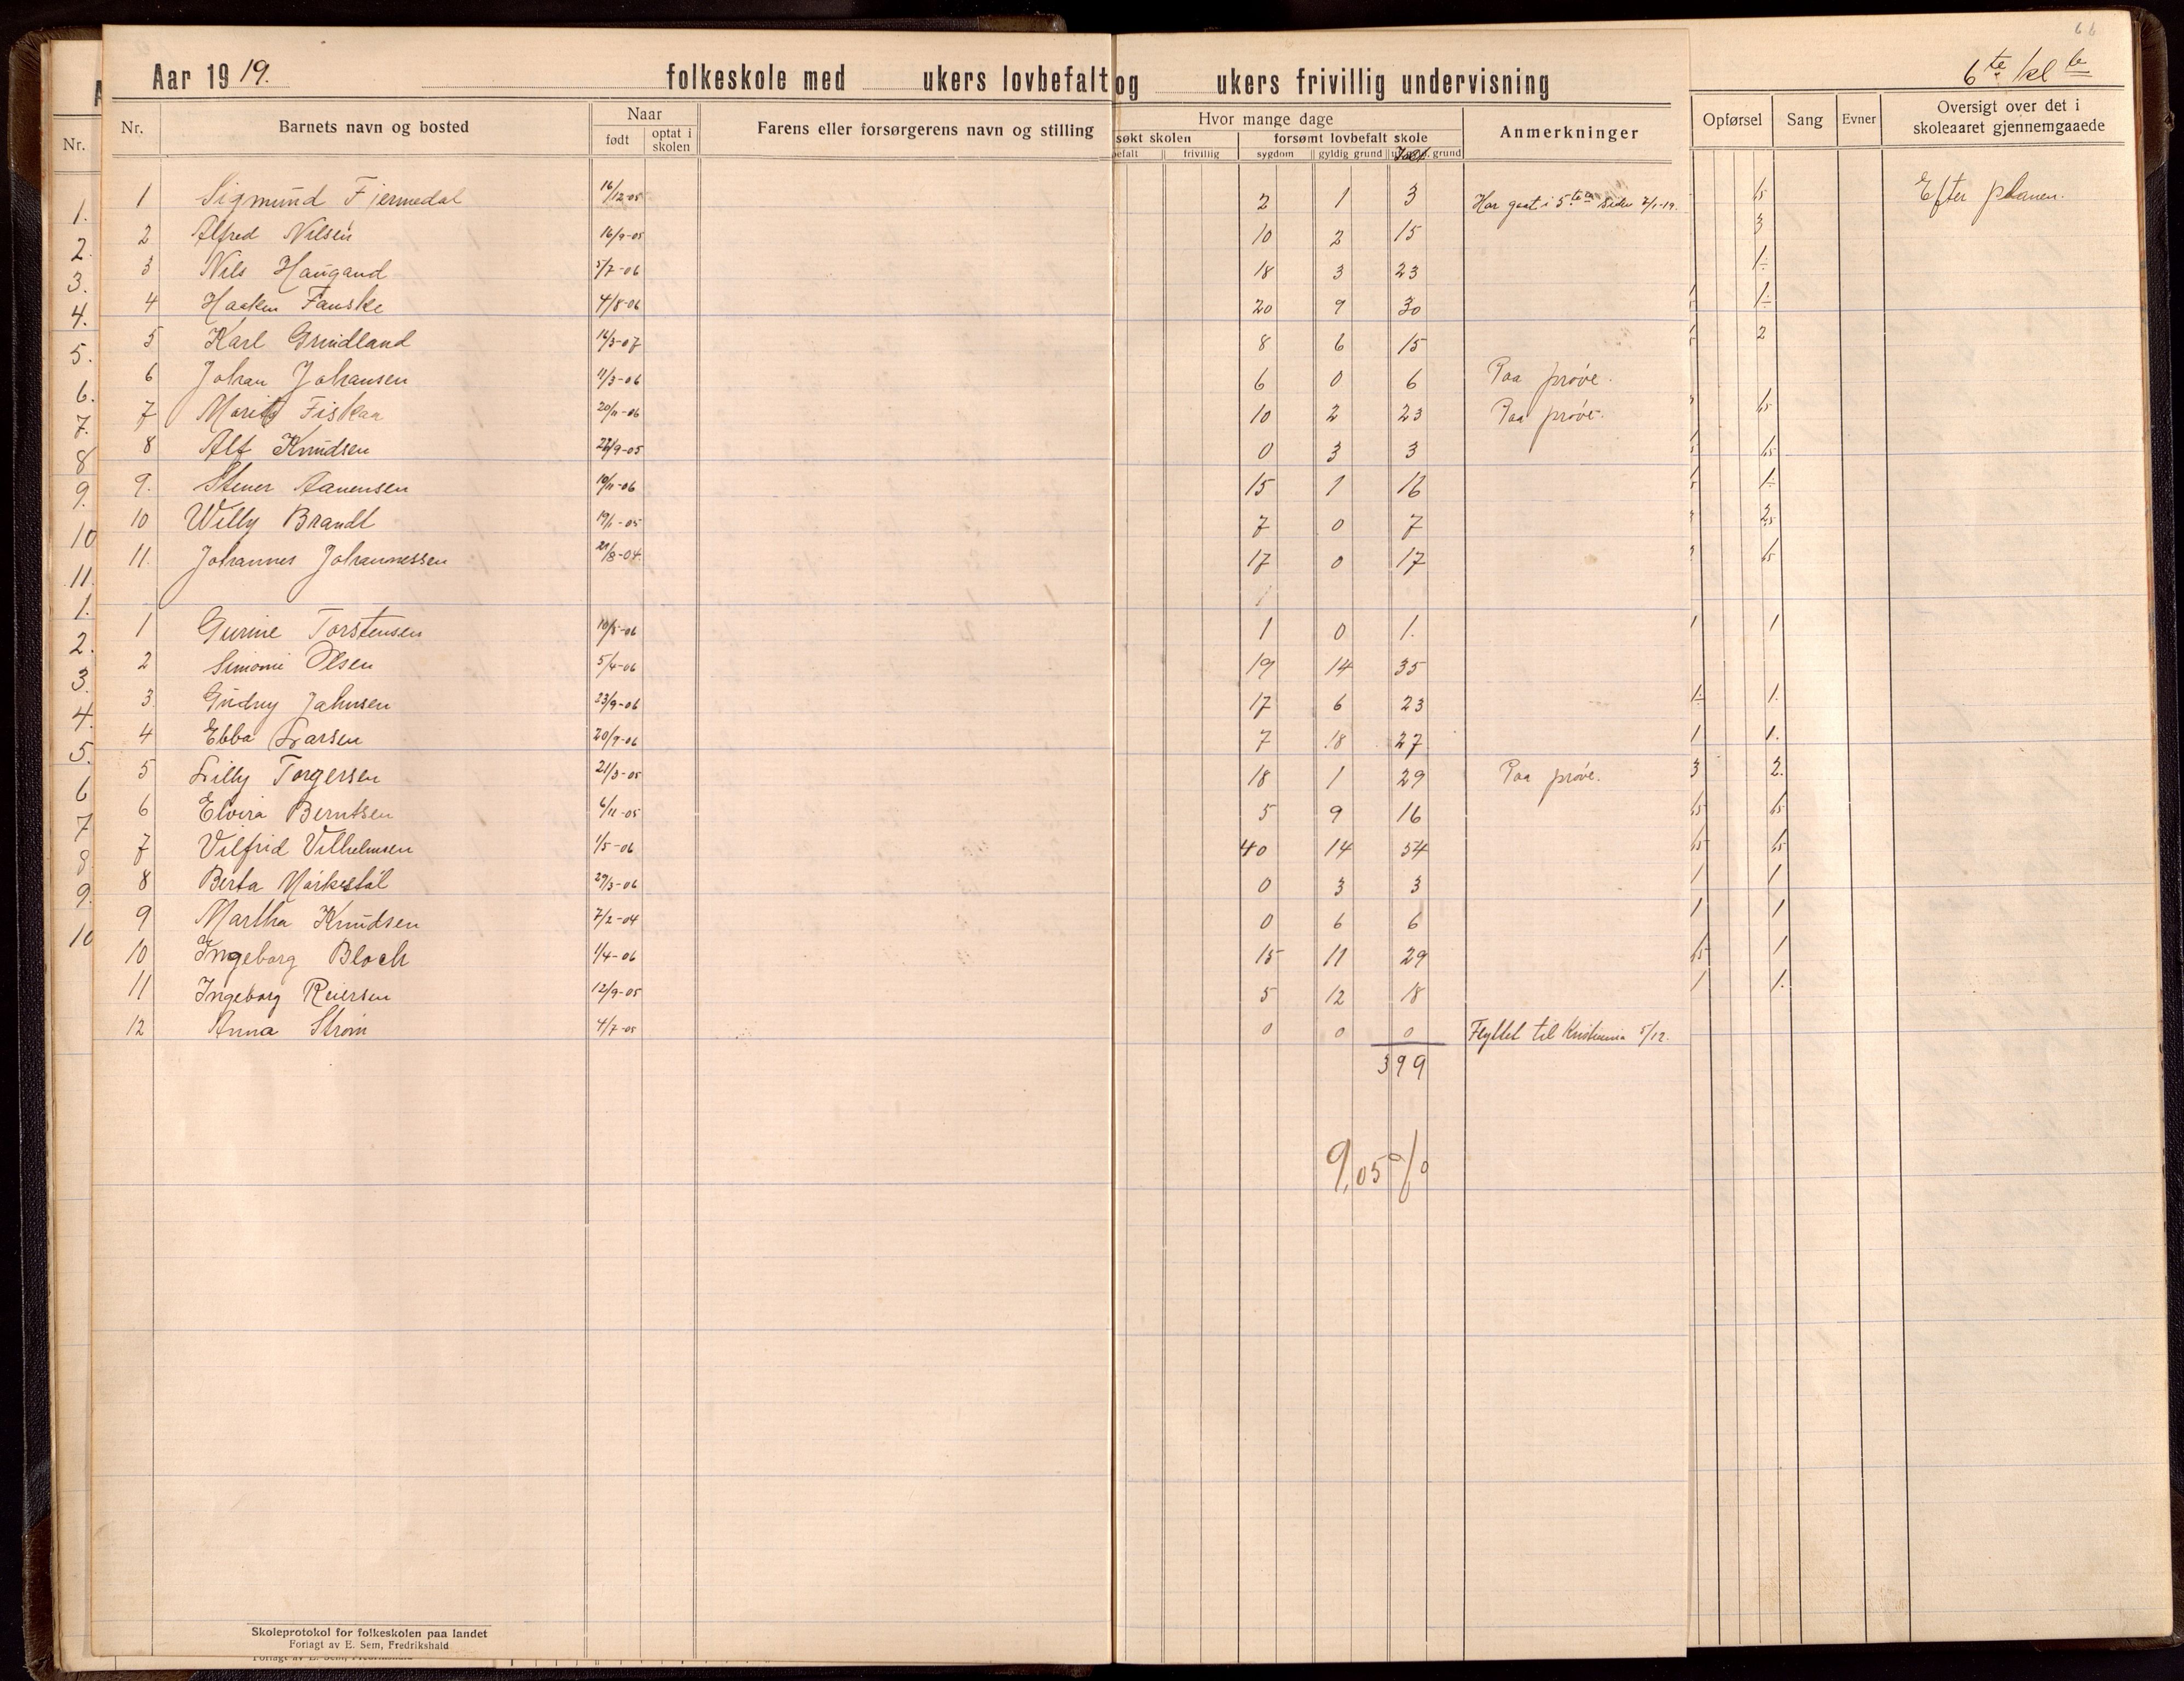 66
6te kl b
Aar 1919. folkeskole med ukers lovbefalt og ukers frivillig undervisning
Nr. Barnets navn og bosted Naar født optat i skolen Farens eller forsørgerens navn og stilling Hvor mange dage søkt skolen befalt frivillig forsømt lovbefalt skole sygdom gyldig grund grund Anmerkninger Opførsel Sang Evner Oversigt over det i skoleaaret gjennemgaaede
1 Sigmund Fjermedal 16/12-05 2 1 3 Har gaat i 5te siden 7/1-19. 15 Efter planen.
2 Alfred Nilsen 16/9-05 10 2 15 3
3 Nils Haugand 5/7-06 18 3 23 1
4 Haaken Fauske 4/8-06 20 9 30 1
5 Karl Grindland 14/3-07 8 6 15 2
6 Johan Johansen 11/3-06 6 0 6 Paa prøve.
7 Morits Fiskaa 20/11-06 10 2 23 Paa prøve. 15
8 Alf Knudsen /9-05 0 3 3 15
9. Stener Aanensen 19/11-06 15 1 16 1
10 Willy Brandt 19/1-05 7 0 7 25
11. Johannes Johannessen 21/8-04 17 0 17 15
1 Gurine Torstensen 10/5-06 1 0 1. 1 1
2 Simoni Olsen 5/4-06 19 14 35
3. Gudny Jahnsen 23/9-06 17 6 23 1 1.
4 Ebba Larsen 20/9-06 7 18 27 1 1.
5 Lilly Torgersen 21/3-05 18 1 29 Paa prøve. 3 2.
6 Elvira Berntsen 6/11-05 5 9 16 15 15
7 Vilfrid Vilhelmsen 1/5-06 40 14 54 15 15
8 Berta Mørkestøl 29/3-06 0 3 3 1 1
9 Martha Knudsen 7/2-04 0 6 6 1 1
10 Ingeborg Bloch 1/4-06 15 11 29 15 1
11 Ingeborg Reiersen 12/9-05 5 12 18 1 1.
12 Anna Strøm 4/7-05 0 0 0 Flyttet til Kristiania 5/12.
399
9,05 %
Nr.
1.
2.
3.
4.
5.
6.
7.
8
9.
10
11.
1.
2.
3.
4.
5.
6
7
8
9.
10
Skoleprotokol for folkeskolen paa landet
Forlagt av E. Sem, Fredrikshald
Forlagt av E. Sem, Fredrikshald